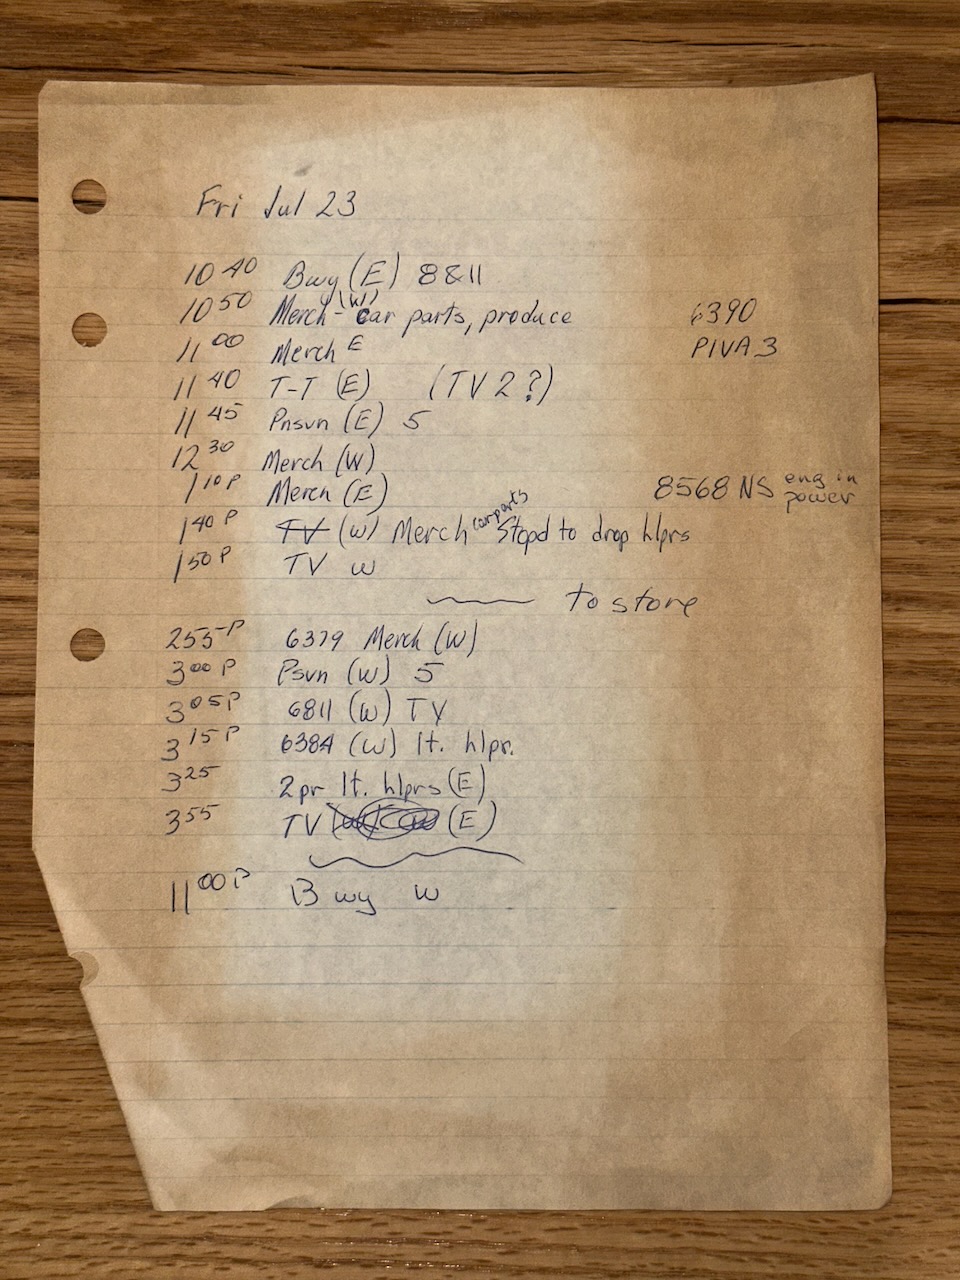 Fri Jul 23
10 40 Bwy (E) 8811
10 50 Merch (W) - car parts, produce 6390
11 00 Merch E PIVA 3
11 40 T-T (E) (TV 2?)
11 45 Pnsvn (E) 5
12 30 Merch (W)
1 10 P Merch (E) 8568 NS eng in power
1 40 P TV (W) Merch car parts Stopd to drop hlprs
1 50 P TV W
to store
2 55 P 6379 Merch (W)
3 00 P Psvn (W) 5
3 05 P 6811 (W) TV
3 15 P 6384 (W) lt. hlpr.
3 25 2pr lt. hlprs (E)
3 55 TV (E)
11 00 P Bwy W